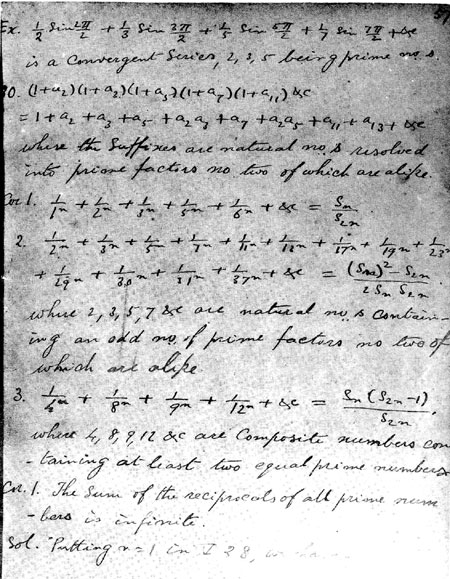 51
Ex. 1/2 Sin 2π/2 + 1/3 Sin 3π/2 + 1/5 Sin 5π/2 + 1/7 Sin 7π/2 + &c
is a Convergent Series, 2, 3, 5 being prime no.s
30. (1+a₂)(1+a₃)(1+a₅)(1+a₇)(1+a₁₁) &c
= 1 + a₂ + a₃ + a₅ + a₂a₃ + a₇ + a₂a₅ + a₁₁ + a₁₃ + &c
where the Suffixes are natural no.s resolved
into prime factors no two of which are alike.
Cor 1. 1/1ⁿ + 1/2ⁿ + 1/3ⁿ + 1/5ⁿ + 1/6ⁿ + &c = Sₙ/S₂ₙ
2. 1/2ⁿ + 1/3ⁿ + 1/5ⁿ + 1/7ⁿ + 1/11ⁿ + 1/13ⁿ + 1/17ⁿ + 1/19ⁿ + 1/23ⁿ
+ 1/29ⁿ + 1/30ⁿ + 1/31ⁿ + 1/37ⁿ + &c = ((Sₙ)² - S₂ₙ)/(2 Sₙ S₂ₙ)
where 2, 3, 5, 7 &c are natural no.s contain-
ing an odd no. of prime factors no two of
which are alike
3. 1/4ⁿ + 1/8ⁿ + 1/9ⁿ + 1/12ⁿ + &c = Sₙ(S₂ₙ-1)/S₂ₙ.
where 4, 8, 9, 12 &c are Composite numbers con
-taining at least two equal prime numbers
Cor. 1. The Sum of the reciprocals of all prime num
-bers is infinite.
Sol. Putting n=1 in I 28,